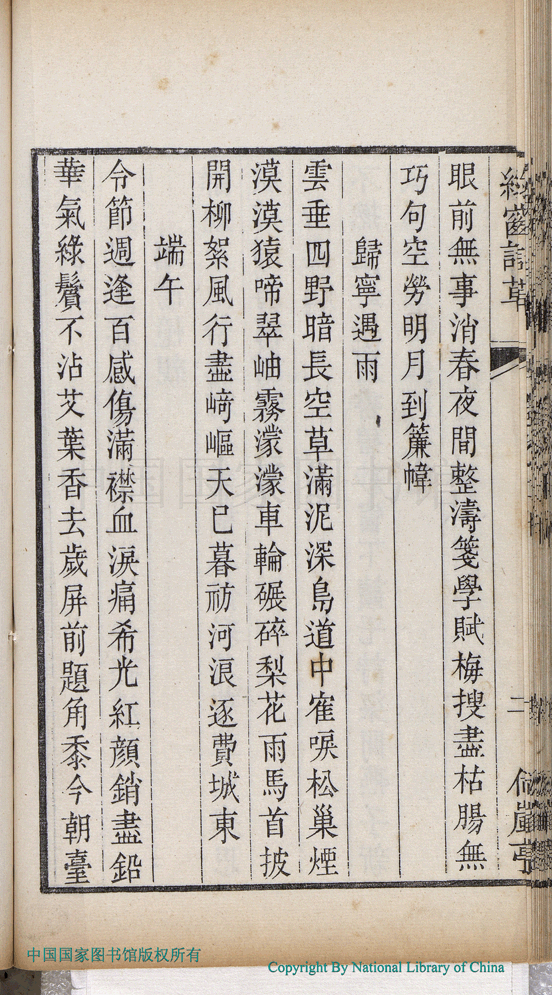 綠窗詩草
二
眼前無事消春夜間整濤箋學賦梅搜盡枯腸無
巧句空勞明月到簾幃
歸寧遇雨
雲垂四野暗長空草滿泥深島道中寉唳松巢煙
漠漠猿啼翠岫霧濛濛車輪碾碎梨花雨馬首披
開柳絮風行盡﨑嶇天已暮祊河浪逐費城東
端午
令節週逢百感傷滿襟血淚痛希光紅顏銷盡鉛
華氣綠鬢不沾艾葉香去歲屏前題角黍今朝臺
中国国家图书馆版权所有
Copyright By National Library of China